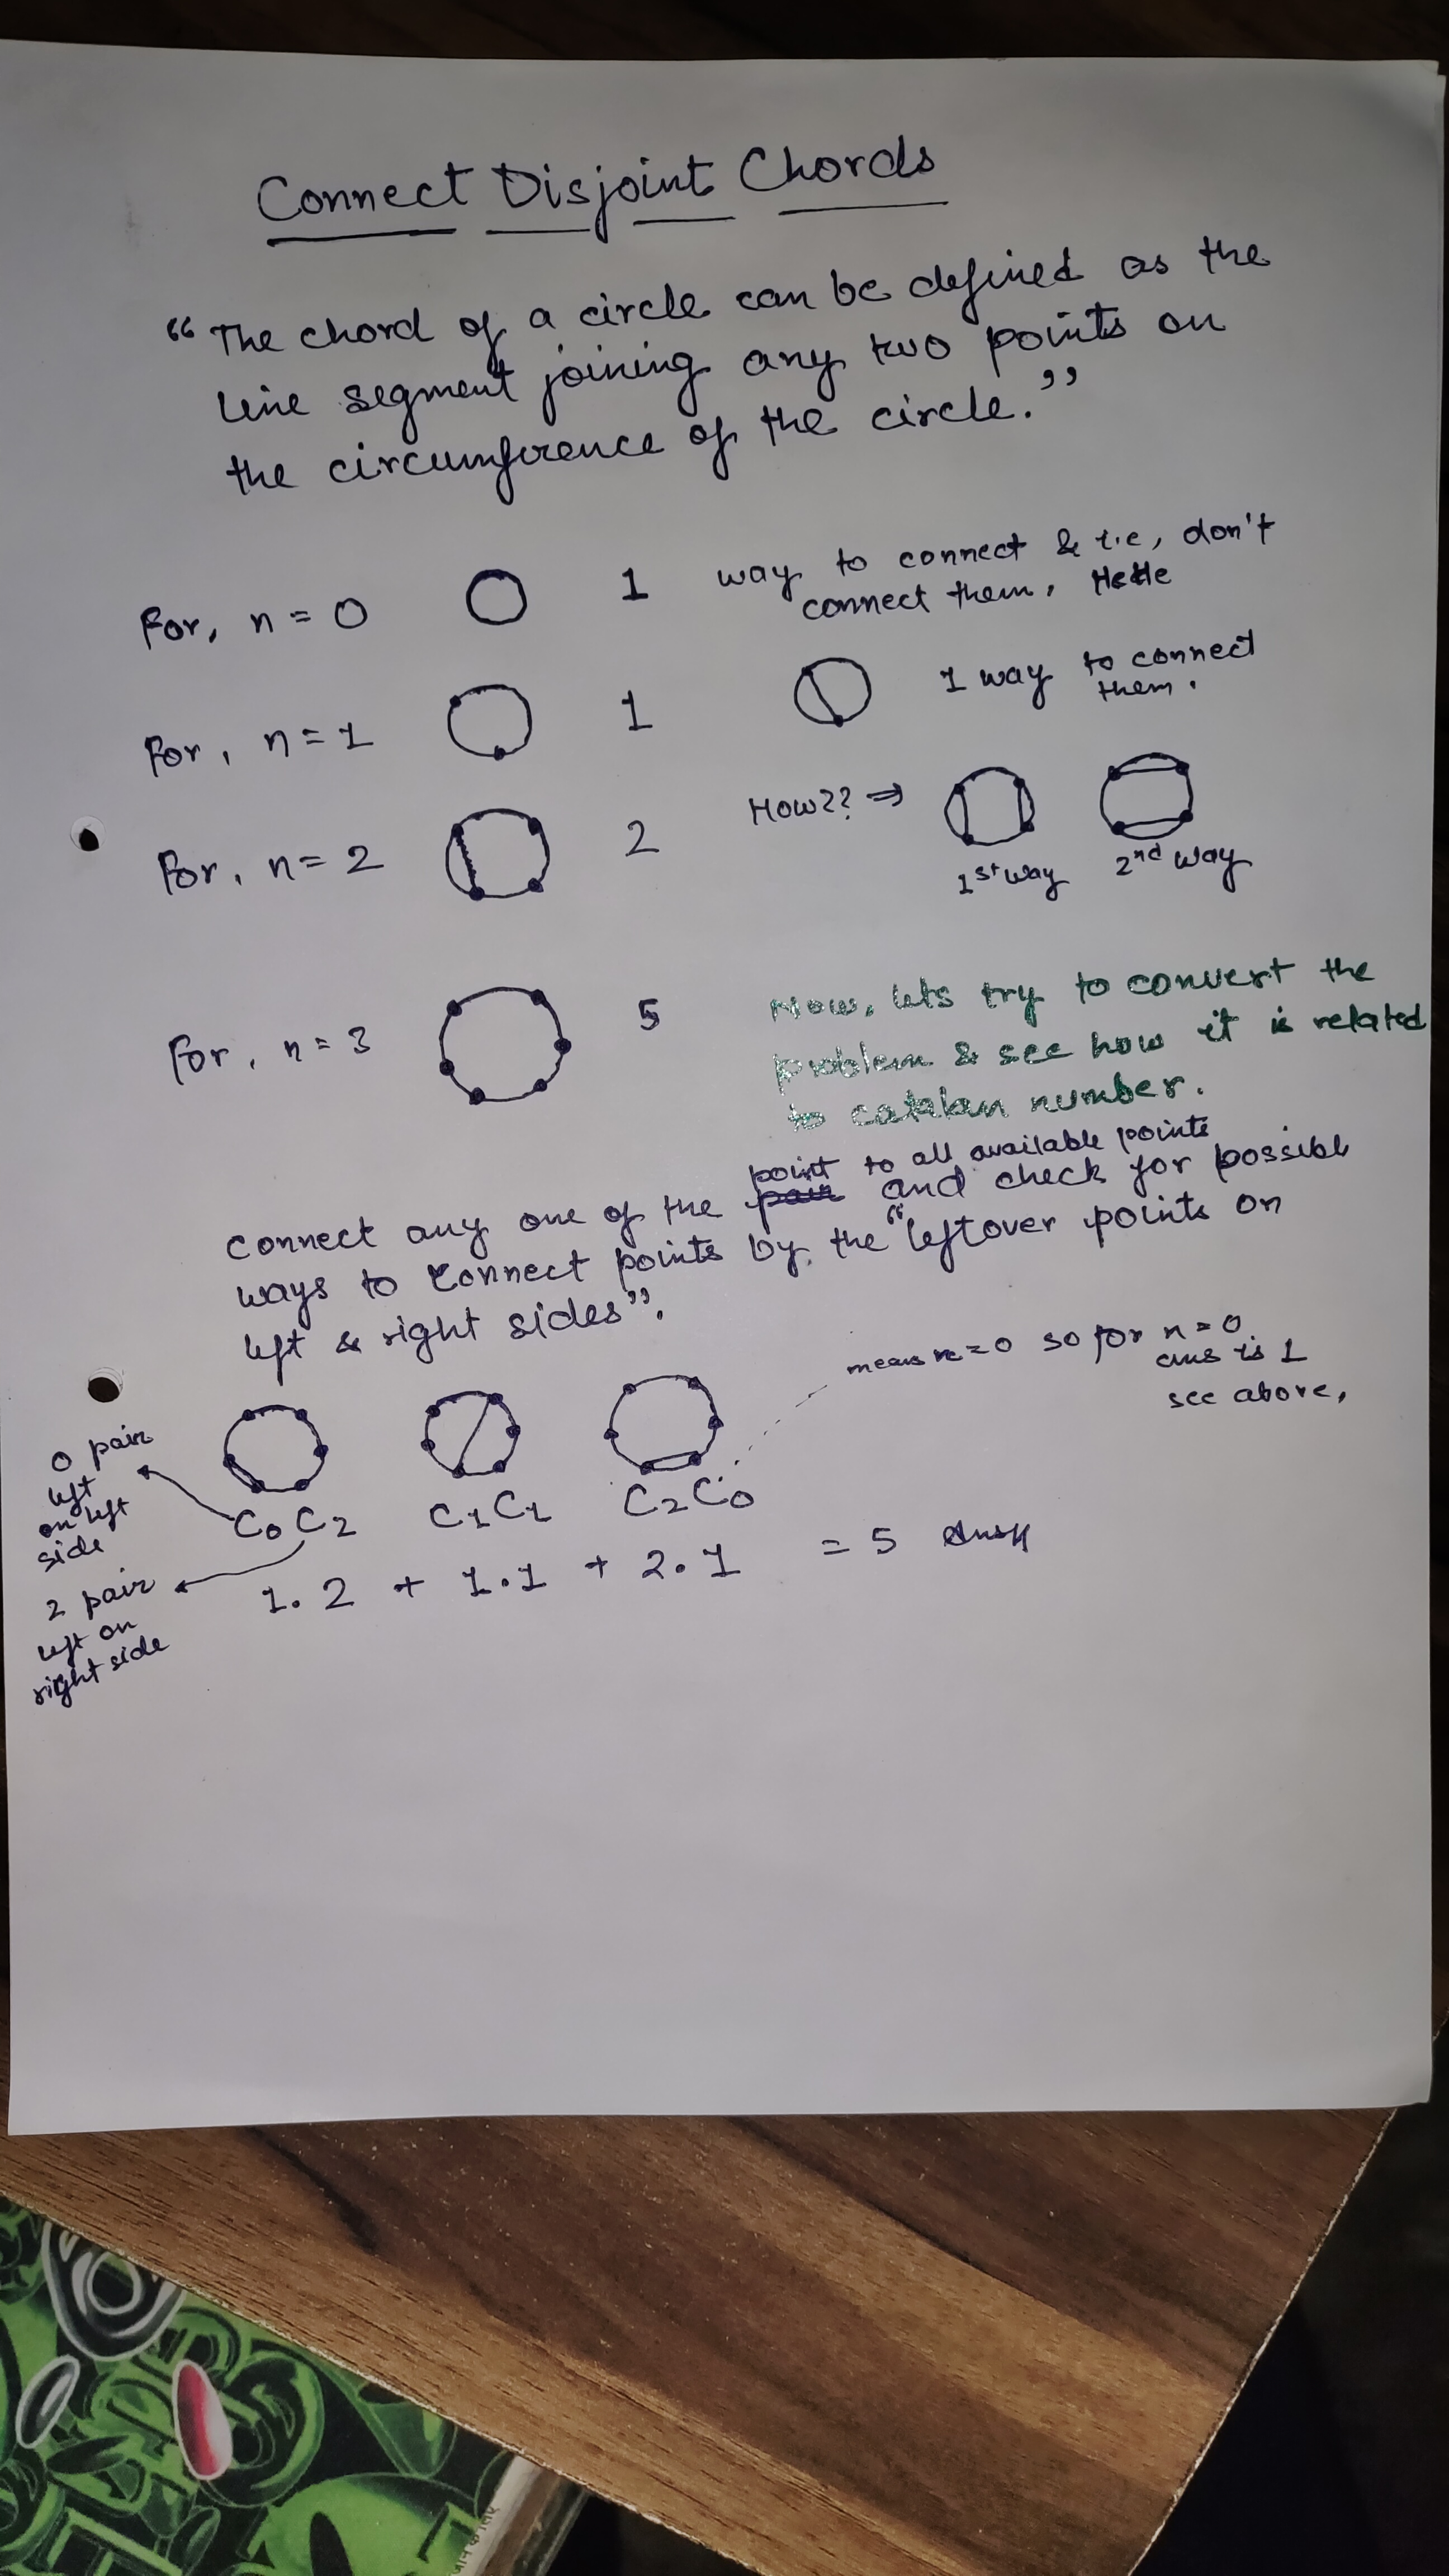 Connect Disjoint Chords
“The chord of a circle can be defined as the
line segment joining any two points on
the circumference of the circle.”
For, n = 0 1 way to connect & i.e, don't
connect them. HeHe
For, n = 1 1 1 way to connect
them.
For, n = 2 2 How?? ⇒
1st way 2nd way
For, n = 3 5 Now, lets try to convert the
problem & see how it is related
to catalan number.
point to all available points
connect any one of the pair and check for possible
ways to connect points by the “leftover points on
left & right sides”.
means n = 0 so for n = 0
ans is 1
see above,
0 pair
left
on left
side
C0 C2 C1 C1 C2 C0
1.2 + 1.1 + 2.1 = 5 Ans
2 pair
left on
right side